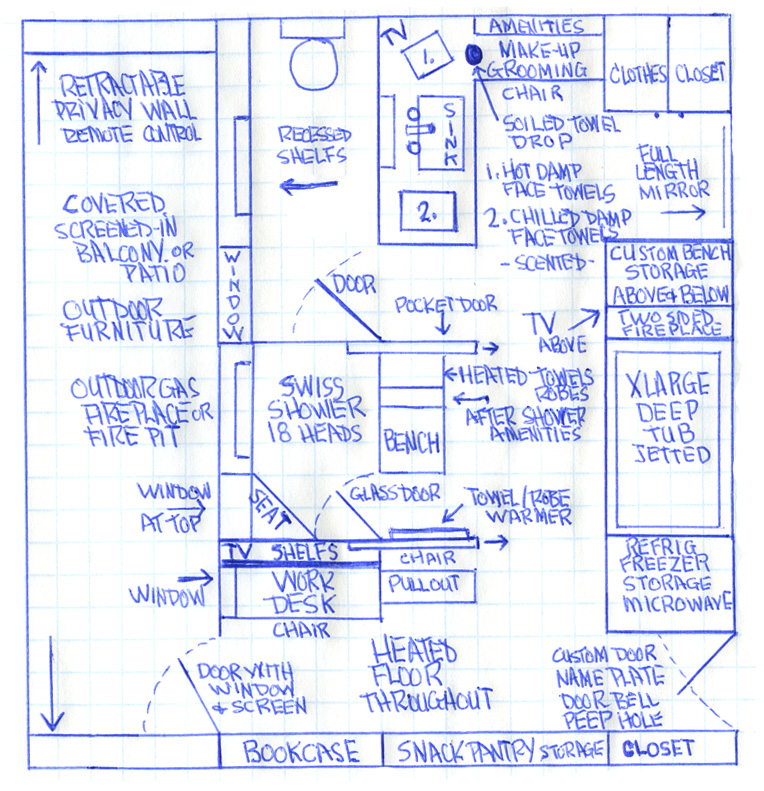 RETRACTABLE
PRIVACY WALL
REMOTE CONTROL
COVERED,
SCREENED-IN
BALCONY OR
PATIO
OUTDOOR
FURNITURE
OUTDOOR GAS
FIREPLACE OR
FIRE PIT
WINDOW
AT TOP
WINDOW
RECESSED
SHELFS
WINDOW
TV
1.
SINK
2.
AMENITIES
MAKE-UP
GROOMING
CHAIR
SOILED TOWEL
DROP
1. HOT DAMP
FACE TOWELS
2. CHILLED DAMP
FACE TOWELS
-SCENTED-
CLOTHES CLOSET
FULL
LENGTH
MIRROR
CUSTOM BENCH
STORAGE
ABOVE & BELOW
TWO SIDED
FIREPLACE
TV
ABOVE
DOOR
POCKET DOOR
HEATED TOWELS
ROBES
AFTER SHOWER
AMENITIES
BENCH
SWISS
SHOWER
18 HEADS
XLARGE
DEEP
TUB
JETTED
SEAT
GLASS DOOR
TOWEL/ROBE
WARMER
TV SHELFS
WORK
DESK
CHAIR
CHAIR
PULLOUT
REFRIG
FREEZER
STORAGE
MICROWAVE
DOOR WITH
WINDOW
& SCREEN
HEATED
FLOOR
THROUGHOUT
CUSTOM DOOR
NAME PLATE
DOOR BELL
PEEP HOLE
BOOKCASE
SNACK PANTRY STORAGE
CLOSET